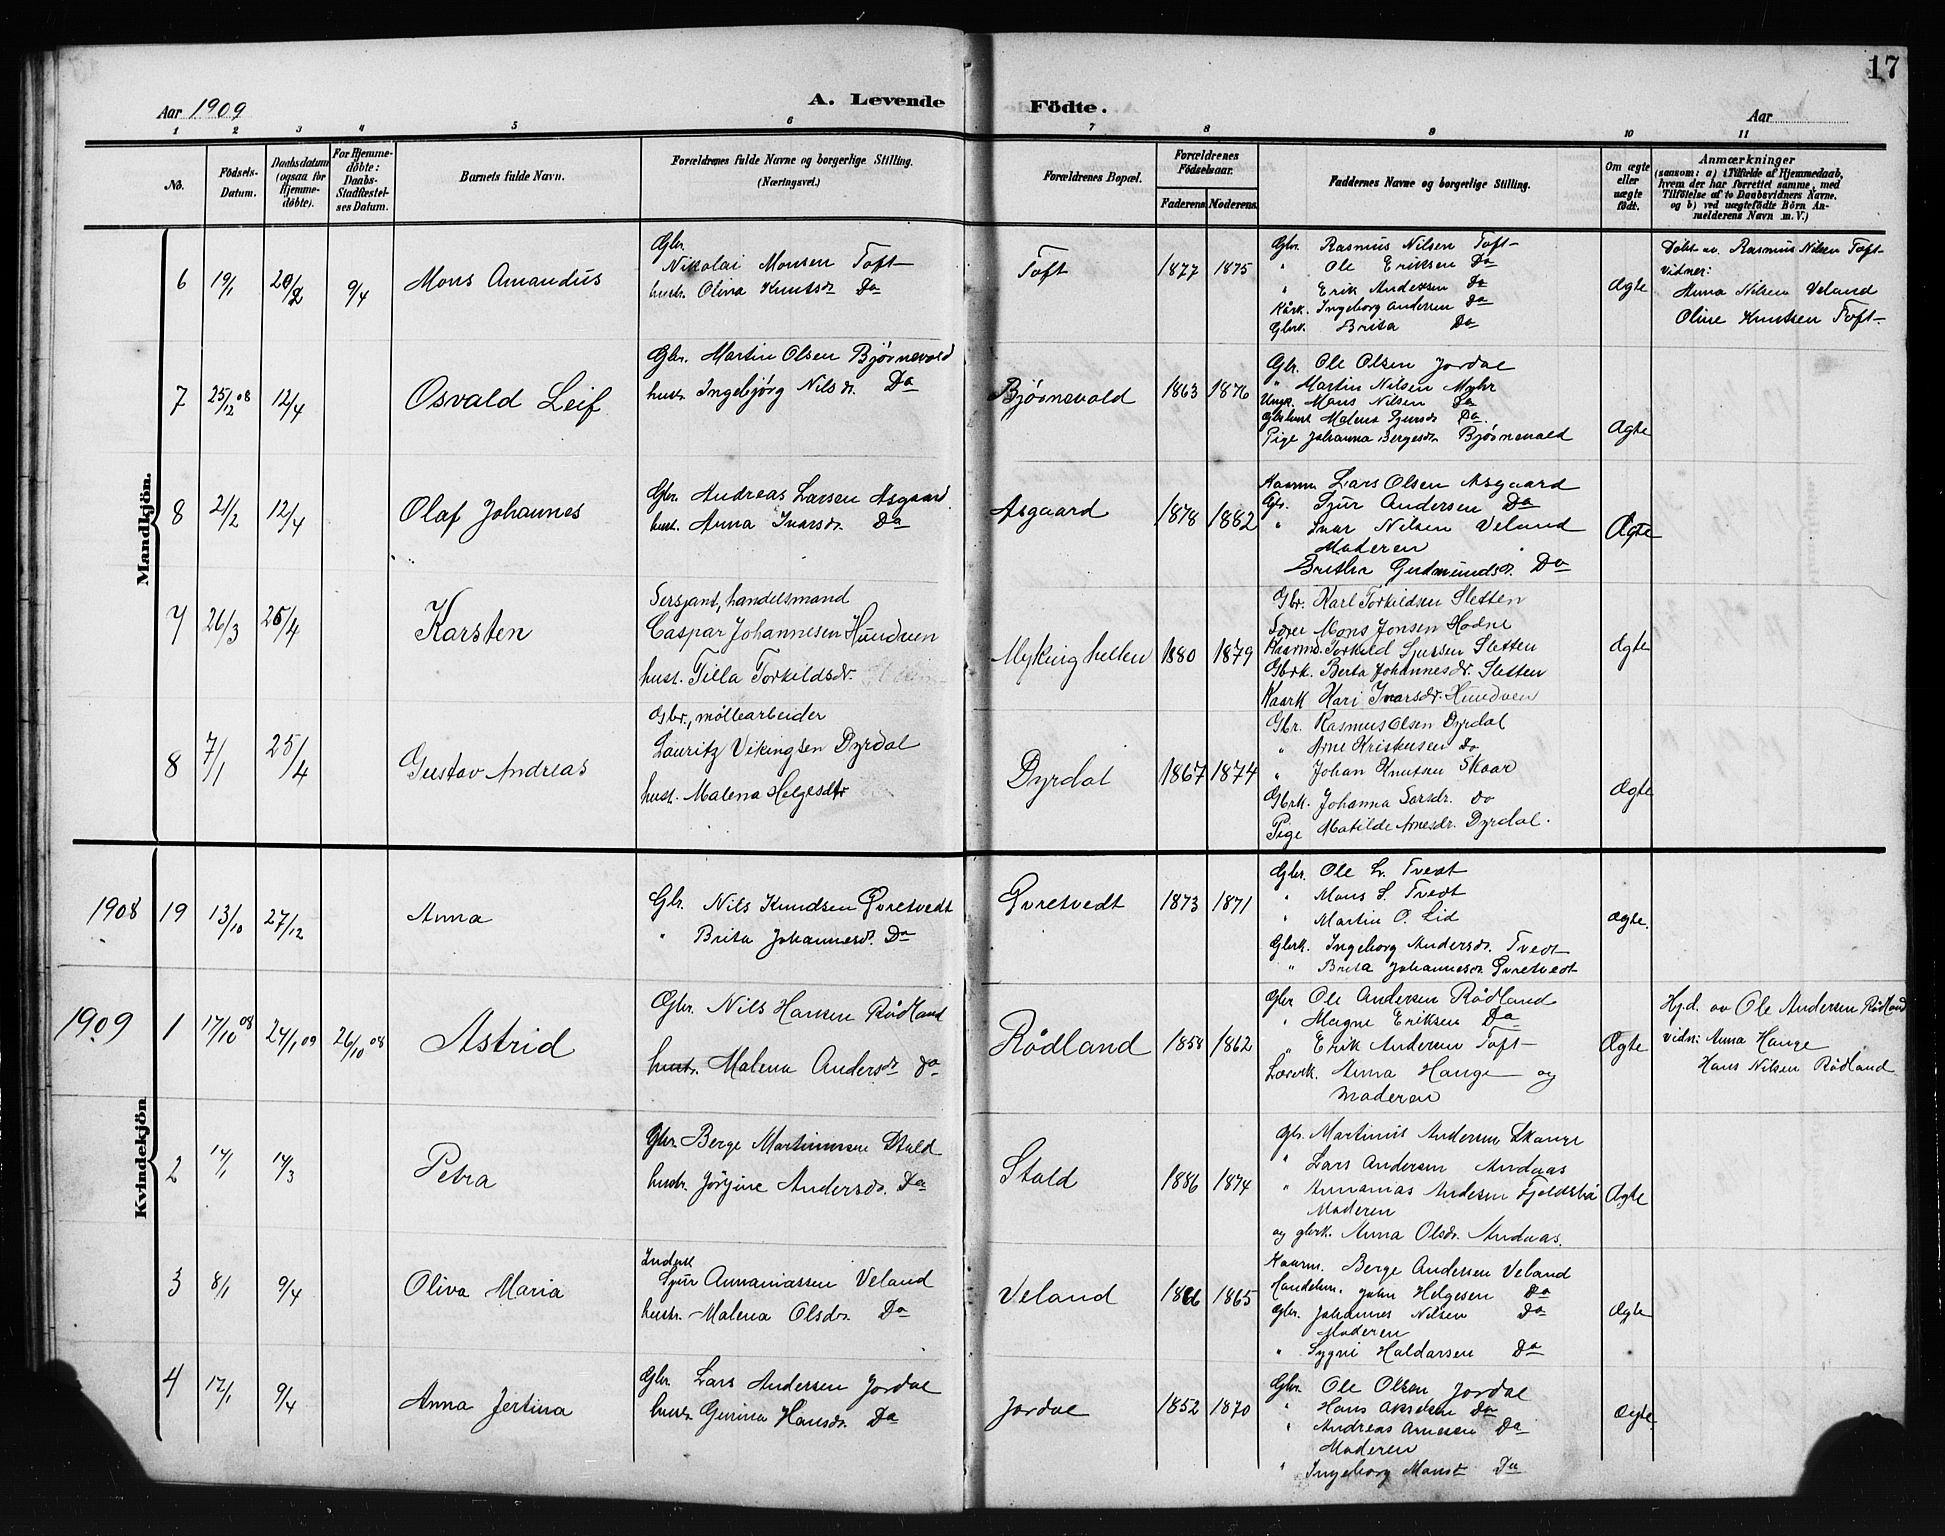 17
Aar 1909 A. Levende Födte. Aar
1 2 3 4 5 6 7 8 9 10 11
No. Födsels-Datum. Daabsdatum (ogsaa for Hjemme-döbte). For Hjemme-döbte: Daabs-Stadfæstel-ses Datum. Barnets fulde Navn. Forældrenes fulde Navne og borgerlige Stilling. (Næringsvei.) Forældrenes Bopæl. Forældrenes Födselsaar. Faderens Moderens Faddernes Navne og borgerlige Stilling. Om ægte eller uægte födt. Anmærkninger (saasom: a) i Tilfælde af Hjemmedaab, hvem der har forrettet samme, med Tilföielse af to Daabsvidners Navne. og b) ved uægtefödte Börn An-melderens Navn m. V.)
Mandkjön.
6 19/1 20/2 9/4 Mons Amandus
Gbr.
Nikolai Monsen Toft
hustr. Olina Knutsdr. Do
Toft 1877 1875
Gbr. Rasmus Nilsen Toft
" Ole Eriksen Do
" Erik Andersen Do
Kårk. Ingeborg Andersen Do
Gbrk. Brita Do
Ægte
Døbt av Rasmus Nilsen Toft
vidner:
Anna Nilsen Veland
Oline Knutsen Toft
7 25/12 08 12/4 Osvald Leif
Gbr. Martin Olsen Bjørnevold
hustr. Ingebjørg Nilsdr. Do
Bjørnevold 1863 1876
Gbr. Ole Olsen Jordal
" Martin Nilsen Myhr
Ungk. Mons Nilsen Do
Gbrhust Malena Sjursdr. Do.
Pige Johanna Bergesdr. Bjørnevold
Ægte
8 21/2 12/4 Olaf Johannes
Gbr. Andreas Larsen Asgaard
hust. Anna Ivarsdr. Do
Asgaard 1878 1882
Kaarm Lars Olsen Asgaard
Gbr. Sjur Andersen Do
" Ivar Nilsen Veland
Moderen
Britha Gudmundsdr. Do
Ægte
7 26/3 25/4 Karsten
Sersjant, handelsmand
Caspar Johannesen Hundven
hust. Tilla Torkildsdr.
Myking hellen 1880 1879
Gbr. Karl Torkildsen Sletten
Mons Jonsen Hodne
Kaarmd. Torkild Sjursen Sletten
Gbrk. Berta Johannesdr. Sletten
Kaark Kari Ivarsdr. Hundven
Ægte
8 7/1 25/4 Gustav Andreas
Gbr., möllearbeider
Lauritz Vikingsen Dyrdal
hust. Malena Helgesdtr
Dyrdal 1867 1874
Gbr. Rasmus Olsen Dyrdal
" Arne Kristensen do
" Johan Knutsen Skaar
Gbrk. Johanna Larsdr. do
Pige Matilde Arnesdr. Dyrdal.
Ægte
Kvindekjön
1908 19 13/10 27/12 Anna
Gbr. Nils Knudsen Qvretvedt
" Brita Johannesdr. Do
Qvretvedt 1873 1871
Gbr. Ole L. Tvedt
" Mons S. Tvedt
" Martin O. Lid
Gbrk. Ingeborg Andersdr. Tvedt
" Brita Johannesdr. Qvretvedt
Ægte.
1909 1 17/10 08 24/1 09 26/10 08 Astrid
Gbr. Nils Hansen Rødland
hustr. Malena Andersdr Do
Rødland 1858 1862
Gbr Ole Andersen Rødland
" Magne Eriksen Do
" Erik Andersen Toft
Lærerk. Anna Hauge og
Moderen
Ægte
Hj.d. av Ole Andersen Rødland
vidn: Anna Hauge
Hans Nilsen Rødland
2 14/1 14/3 Petra
Gbr. Berge Martinussen Stald
hustr. Jørgine Andersdr. Do
Stald 1886 1874
Gbr. Martinus Andersen Skauge
" Lars Andersen Andaas
" Annanias Andersen Fjeldsbø
Moderen
og gbrk. Anna Olsdr. Andaas.
Ægte
3 8/1 9/4 Oliva Maria
Inderst
Sjur Annaniassen Veland
hustr. Malena Olsdr. Do
Veland 1866 1865
Kaarm. Berge Andersen Veland
Handelsm. John Helgesen Do
Gbr. Johannes Nilsen Do
Moderen
" Sygni Haldorsen Do
Ægte
4 12/1 9/4 Anna Jertina
Gbr. Lars Andersen Jordal
hustr. Gurina Hansdr. Do
Jordal 1852 1870
Gbr. Ole Olsen Jordal
" Hans Akselsen Do
" Andreas Arnesen Do
Moderen
" Ingeborg Monsdr. Do
Ægte.